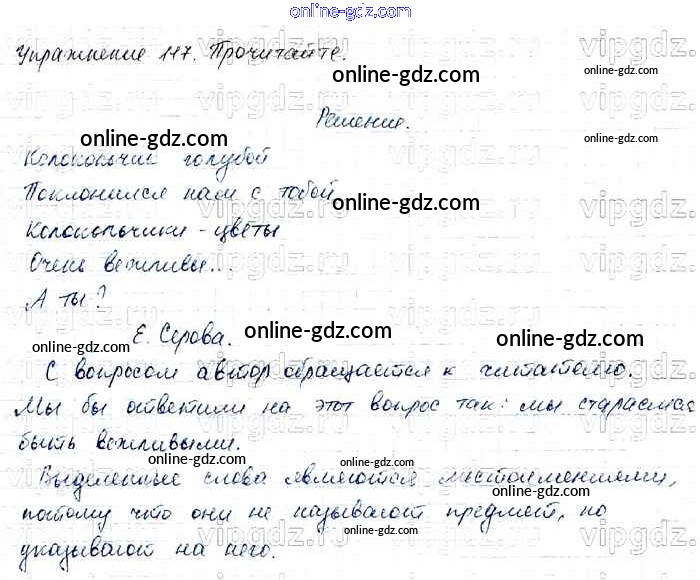 online-gdz.com
Упражнение 117. Прочитайте.
online-gdz.com
Решение.
online-gdz.com
Колокольчик голубой
Поклонился нам с тобой.
online-gdz.com
Колокольчики - цветы
Очень вежливы...
online-gdz.com
А ты?
Е. Серова.
online-gdz.com
online-gdz.com
online-gdz.com
С вопросом автор обращается к читателю.
online-gdz.com
Мы бы ответили на этот вопрос так: мы стараемся
быть вежливыми.
online-gdz.com
online-gdz.com
Выделенные слова являются местоимениями,
потому что они не называют предмет, но
online-gdz.com
online-gdz.com
указывают на него.
vipgdz.com